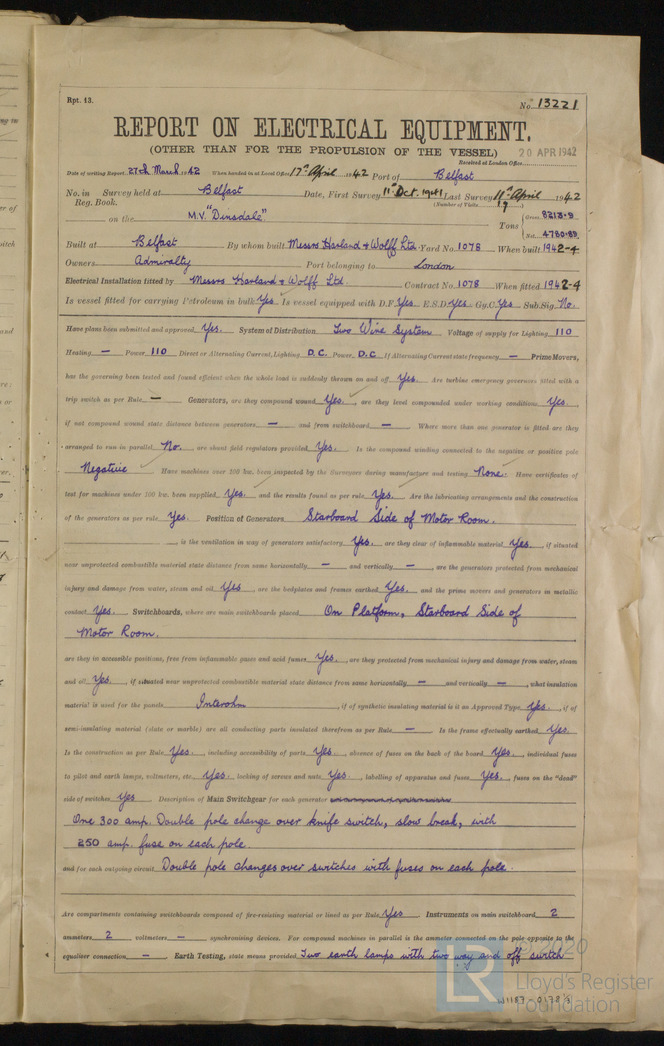 Rpt. 13.
No. 13221
REPORT ON ELECTRICAL EQUIPMENT.
(OTHER THAN FOR THE PROPULSION OF THE VESSEL)
20 APR 1942
Received at London Office
Date of writing Report 27th March 1942 When handed in at Local Office 17th April 1942 Port of Belfast
No. in Survey held at Belfast Date, First Survey 11th Oct. 1941 Last Survey 11th April 1942
Reg. Book. (Number of Visits 19)
on the M.V. "Dinsdale" Tons Gross 8213.9
Net 4780.89
Built at Belfast By whom built Messrs Harland & Wolff Ltd. Yard No. 1078 When built 1942-4
Owners Admiralty Port belonging to London
Electrical Installation fitted by Messrs Harland & Wolff Ltd. Contract No. 1078 When fitted 1942-4
Is vessel fitted for carrying Petroleum in bulk Yes. Is vessel equipped with D.F. Yes. E.S.D. Yes. Gy.C. Yes Sub.Sig. No.
Have plans been submitted and approved Yes. System of Distribution Two Wire System Voltage of supply for Lighting 110
Heating — Power 110 Direct or Alternating Current, Lighting D.C. Power D.C If Alternating Current state frequency — Prime Movers,
has the governing been tested and found efficient when the whole load is suddenly thrown on and off Yes. Are turbine emergency governors fitted with a
trip switch as per Rule — Generators, are they compound wound Yes., are they level compounded under working conditions Yes.,
if not compound wound state distance between generators — and from switchboard — Where more than one generator is fitted are they
arranged to run in parallel No., are shunt field regulators provided Yes. Is the compound winding connected to the negative or positive pole
Negative Have machines over 100 kw. been inspected by the Surveyors during manufacture and testing None. Have certificates of
test for machines under 100 kw. been supplied Yes. and the results found as per rule Yes. Are the lubricating arrangements and the construction
of the generators as per rule Yes. Position of Generators Starboard Side of Motor Room.
, is the ventilation in way of generators satisfactory Yes. are they clear of inflammable material Yes., if situated
near unprotected combustible material state distance from same horizontally — and vertically —, are the generators protected from mechanical
injury and damage from water, steam and oil Yes, are the bedplates and frames earthed Yes. and the prime movers and generators in metallic
contact Yes. Switchboards, where are main switchboards placed On Platform, Starboard Side of
Motor Room.
are they in accessible positions, free from inflammable gases and acid fumes Yes., are they protected from mechanical injury and damage from water, steam
and oil Yes., if situated near unprotected combustible material state distance from same horizontally — and vertically —, what insulation
material is used for the panels Interohm, if of synthetic insulating material is it an Approved Type Yes., if of
semi-insulating material (slate or marble) are all conducting parts insulated therefrom as per Rule — Is the frame effectually earthed Yes.
Is the construction as per Rule Yes., including accessibility of parts Yes., absence of fuses on the back of the board Yes., individual fuses
to pilot and earth lamps, voltmeters, etc. Yes. locking of screws and nuts Yes., labelling of apparatus and fuses Yes., fuses on the "dead"
side of switches Yes Description of Main Switchgear for each generator
One 300 amp. Double pole change over knife switch, slow break, with
250 amp. fuse on each pole.
and for each outgoing circuit Double pole changeover switches with fuses on each pole.
Are compartments containing switchboards composed of fire-resisting material or lined as per Rule Yes Instruments on main switchboard 2
ammeters 2 voltmeters — synchronising devices. For compound machines in parallel is the ammeter connected on the pole opposite to the
equaliser connection — Earth Testing, state means provided Two earth lamps with two way and off switch
© 2020
LR
Lloyd's Register
Foundation